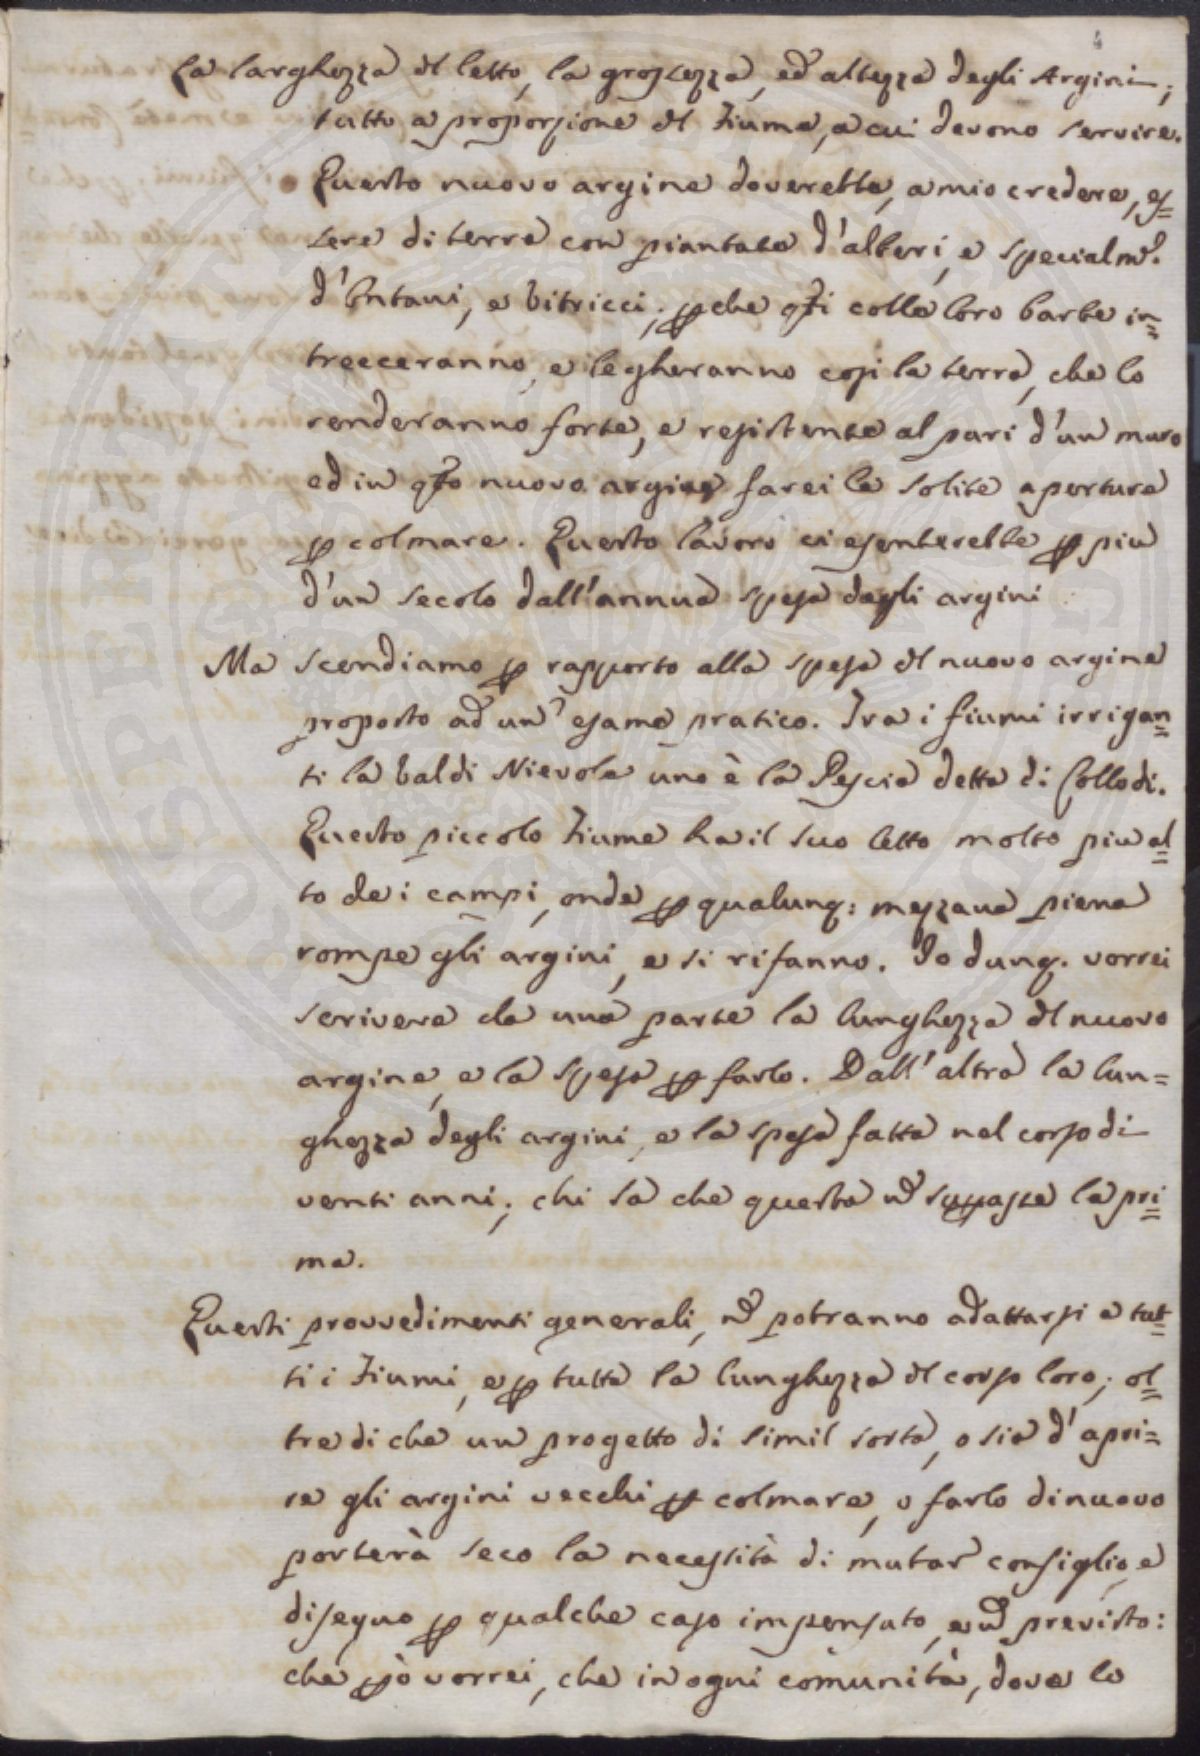 4
La larghezza dl letto, la grossezza, ed altezza degli Argini,
tutto a proporzione dl Fiume, a cui devono servire.
Questo nuovo argine doverebbe, a mio credere, es=
sere di terra con piantate d'alberi, e specialmte.
d'Ontani, e Vitricci, pche qti colle loro barbe in=
trecceranno, e legheranno cosi la terra, che lo
renderanno forte, e resistente al pari d'un muro
ed in qto nuovo argine farei le solite aperture
p colmare. Questo lavoro ci esenterebbe p piu
d'un secolo dall'annua spesa degli argini
Ma scendiamo p rapporto alla spesa dl nuovo argine
proposto ad un' esame pratico. Tra i fiumi irrigan=
ti la Valdi Nievole uno è la Pescia detta di Collodi.
Questo piccolo Fiume ha il suo letto molto piu al=
to de i campi, onde p qualunq: mezzana piena
rompe gli argini, e si rifanno. Io dunq. vorrei
scrivere da una parte la lunghezza dl nuovo
argine, e la spesa p farlo. Dall'altra la lun=
ghezza degli argini, e la spesa fatta nel corso di
venti anni; chi sa che questa nō supasse la pri=
ma.
Questi provvedimenti generali, nō potranno adattarsi a tut=
ti i Fiumi, e p tutta la lunghezza dl corso loro; ol=
tre di che un progetto di simil sorta, o sia d'apri=
re gli argini vecchi p colmare, o farlo di nuovo
porterà seco la necessità di mutar consiglio, e
disegno p qualche caso impensato, e nō previsto:
che pò vorrei, che in ogni comunità, dove lo